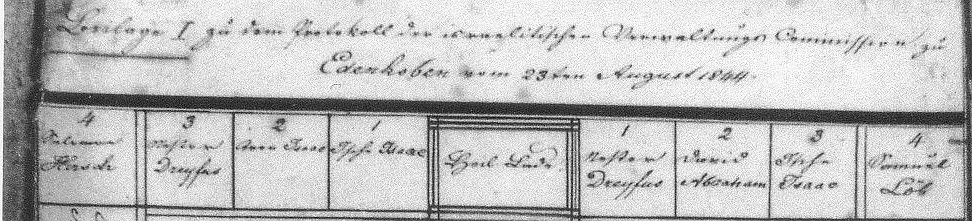 Beilage I. zu dem Protokoll der israelitischen Verwaltungs Commission zu
Edenkoben vom 23ten August 1844.
4 3 2 1 1 2 3 4
Nestor Aron Isaac Isaac Heil. Lade. Nestor David Samuel
Hirsch Dreyfus Dreyfus Abraham Isaac Löb